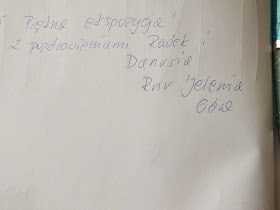 Piękna ekspozycja!
z pozdrowieniami Radek i
Danusia
Rnv Jelenia
Góra